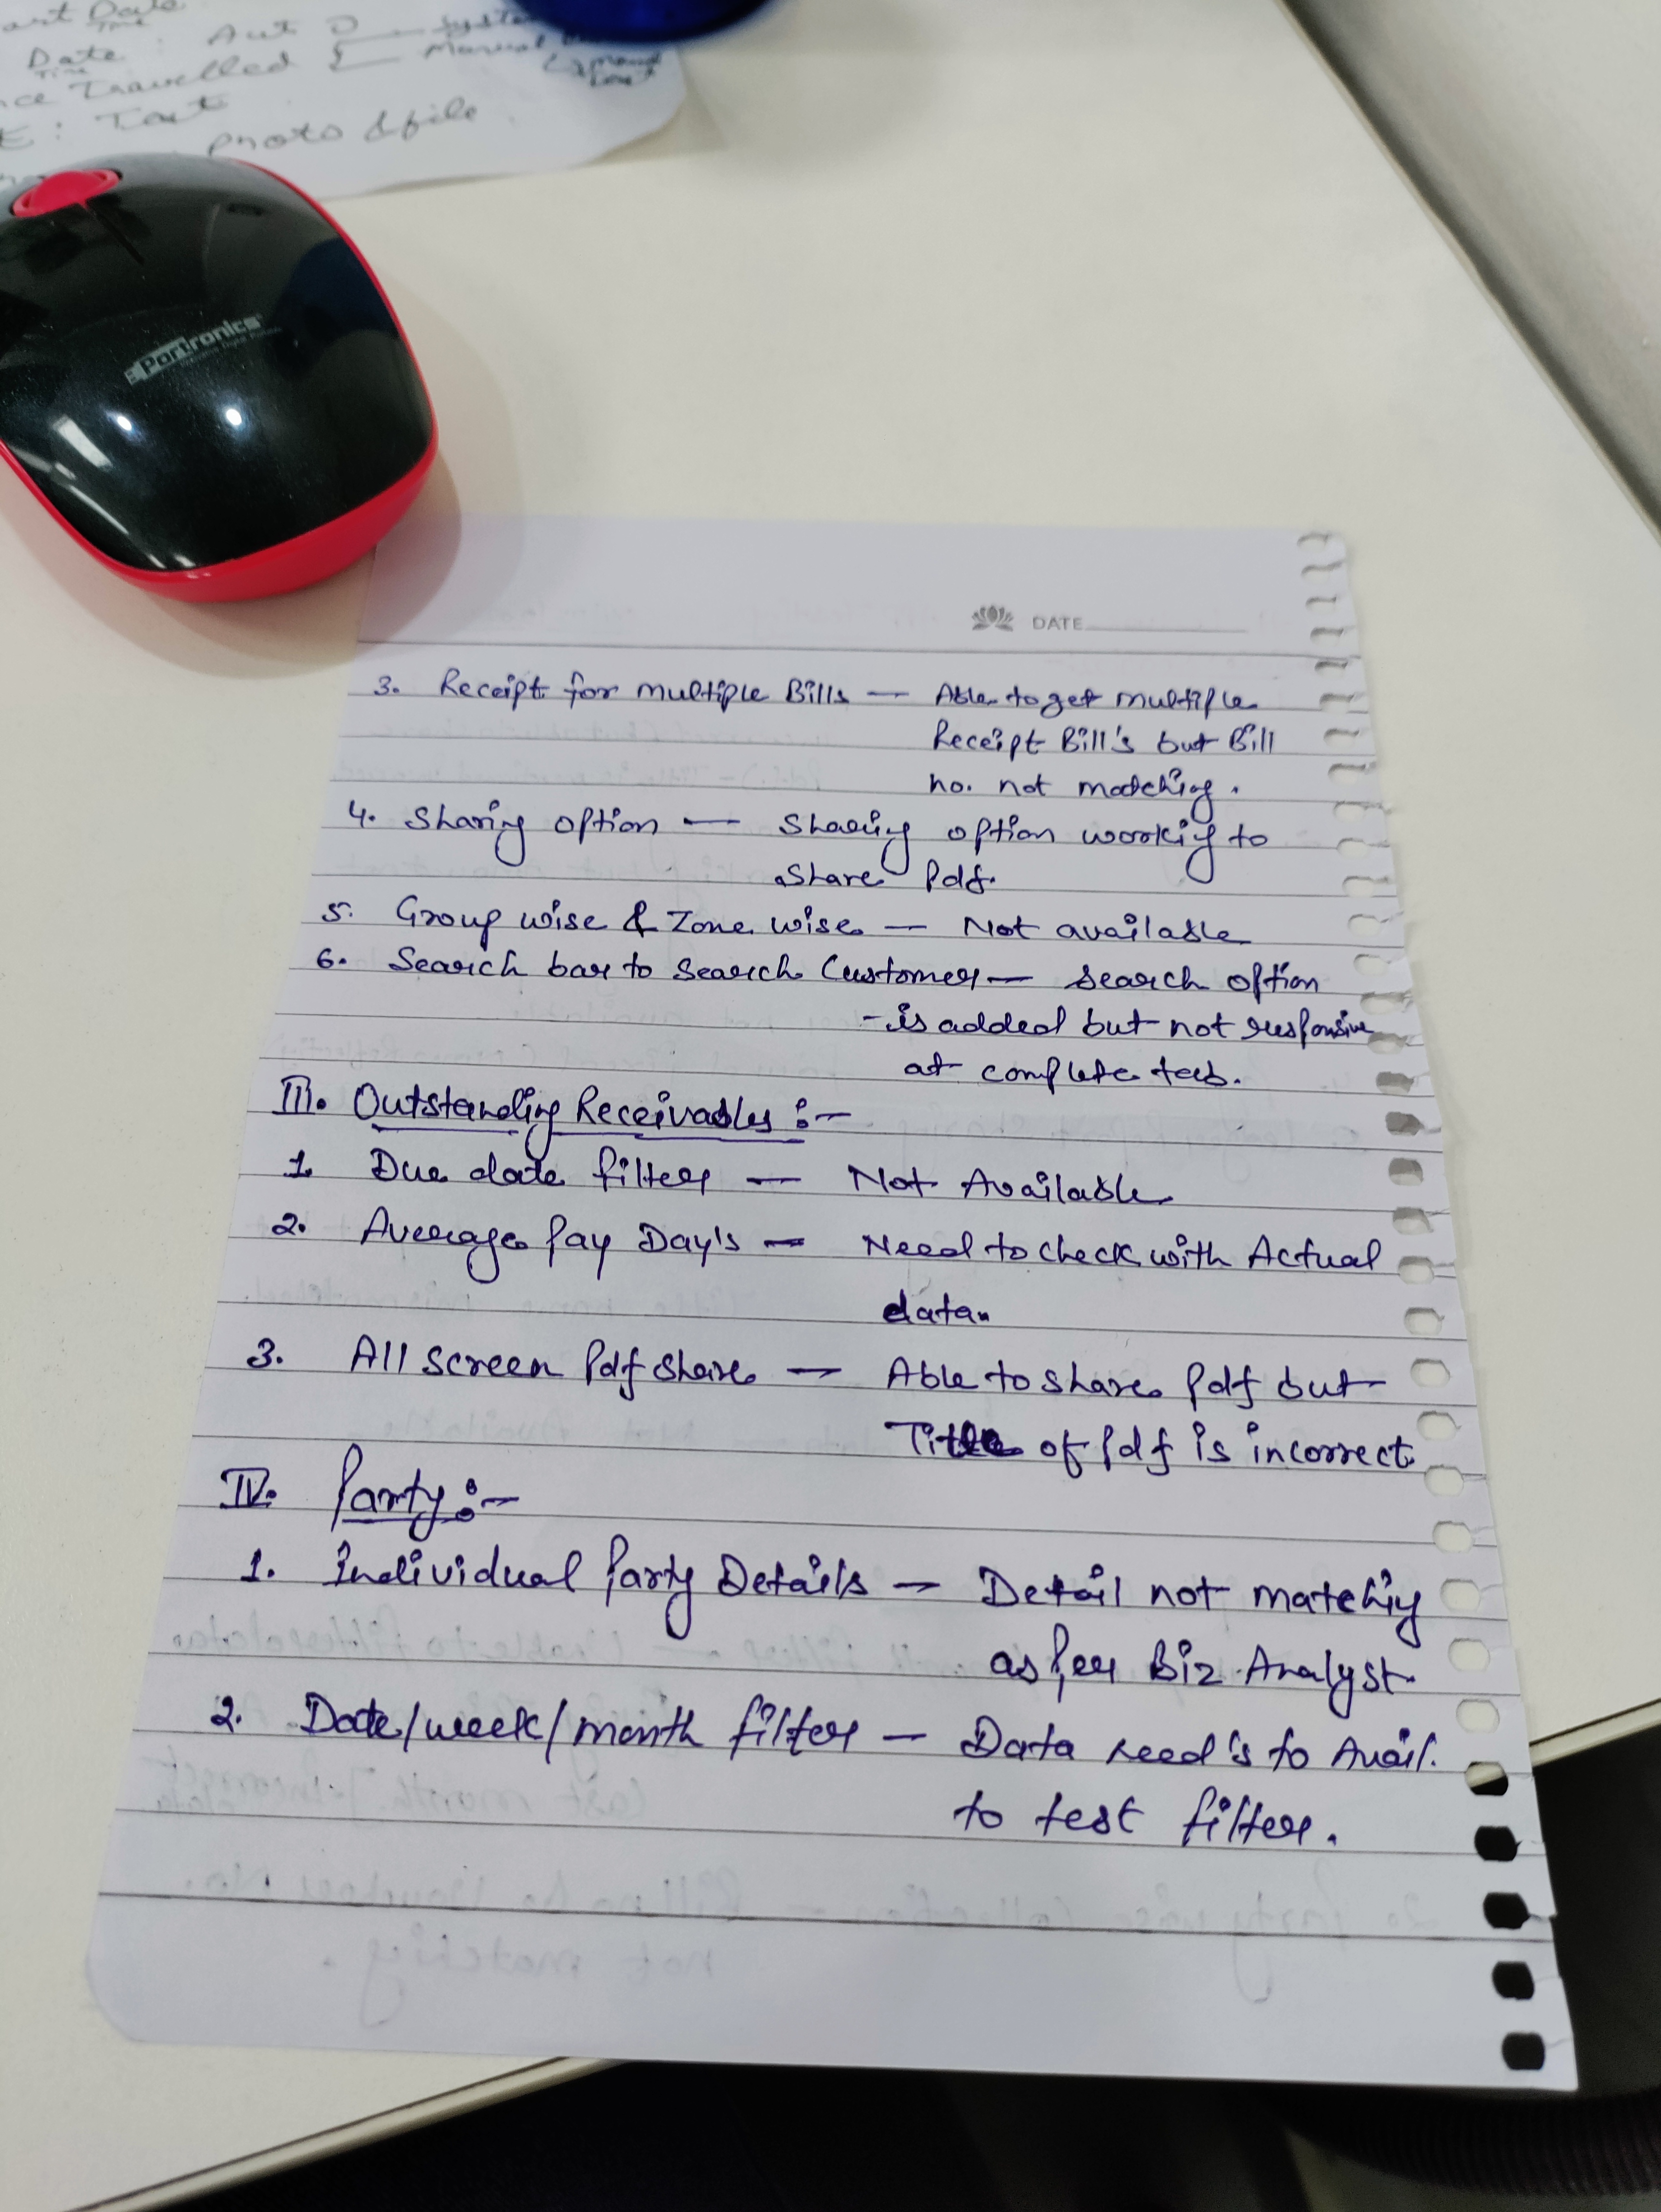 Date
Time
Date : Aut
Time
Travelled { Manual
: Text
photo & file
Portronics
DATE
3. Receipt for multiple Bills — Able to get multiple
Receipt Bill's but Bill
no. not matching.
4. Sharing option — Sharing option workig to
share Pdf.
5. Group wise & Zone wise — Not available
6. Search bar to Search Customer — search option
- is added but not responsive
at complete tab.
III. Outstanding Receivables :-
1. Due date filter — Not Available
2. Average Pay Day's — Need to check with Actual
data.
3. All screen Pdf share — Able to share Pdf but
Title of Pdf is incorrect.
IV. Party :-
1. Individual Party Details — Detail not matchig
as per Biz Analyst.
2. Date/week/month filter — Data need's to Avail.
to test filter.